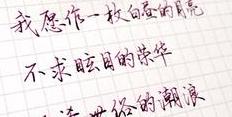 我愿作一枚白昼的月亮
不求眩目的荣华
世俗的潮浪